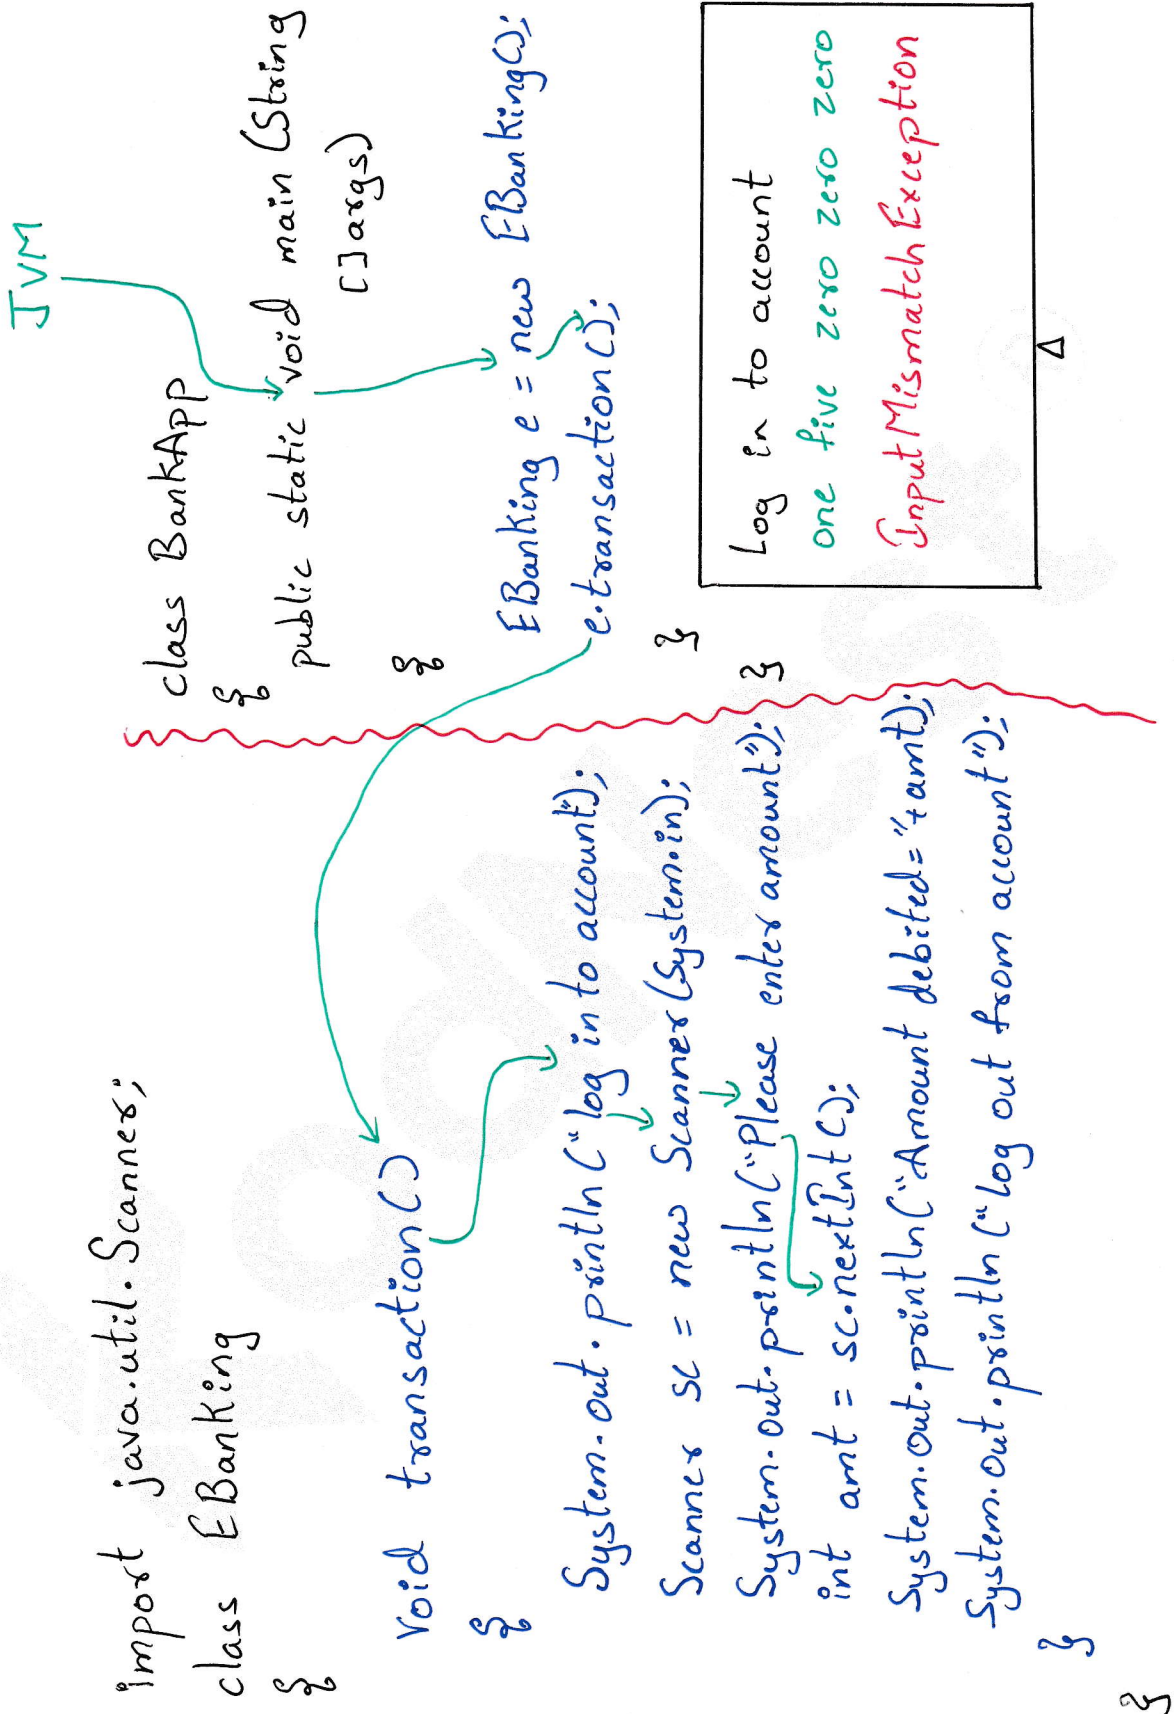 import java.util.Scanner;
class EBanking
{
void transaction()
{
System.out.println("log in to account");
Scanner sc = new Scanner(System.in);
System.out.println("Please enter amount");
int amt = sc.nextInt();
System.out.println("Amount debited="+amt);
System.out.println("log out from account");
}
}
JVM
class BankApp
{
public static void main(String
[]args)
{
EBanking e = new EBanking();
e.transaction();
}
}
Log in to account
one five zero zero zero
InputMismatchException